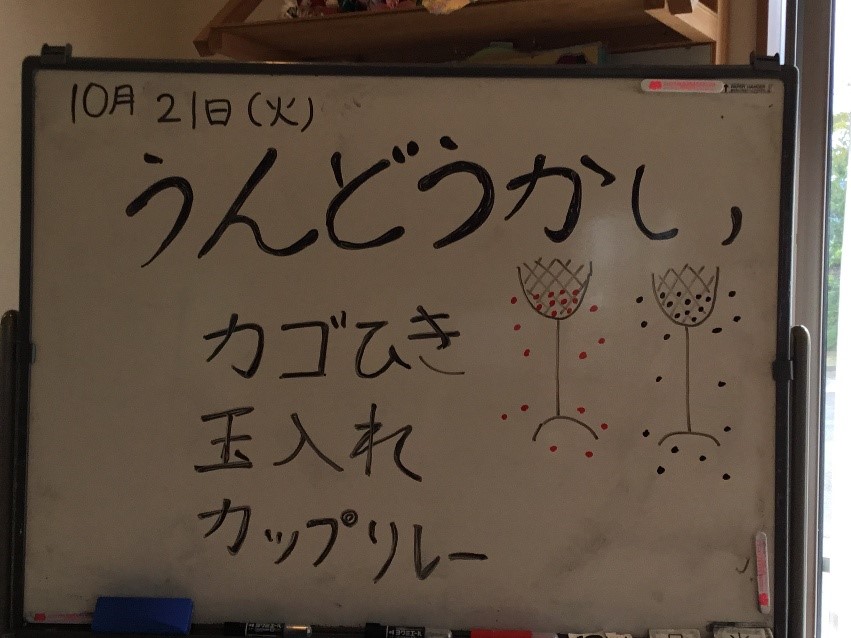 10月21日(火)
うんどうかい
カゴひき
玉入れ
カップリレー